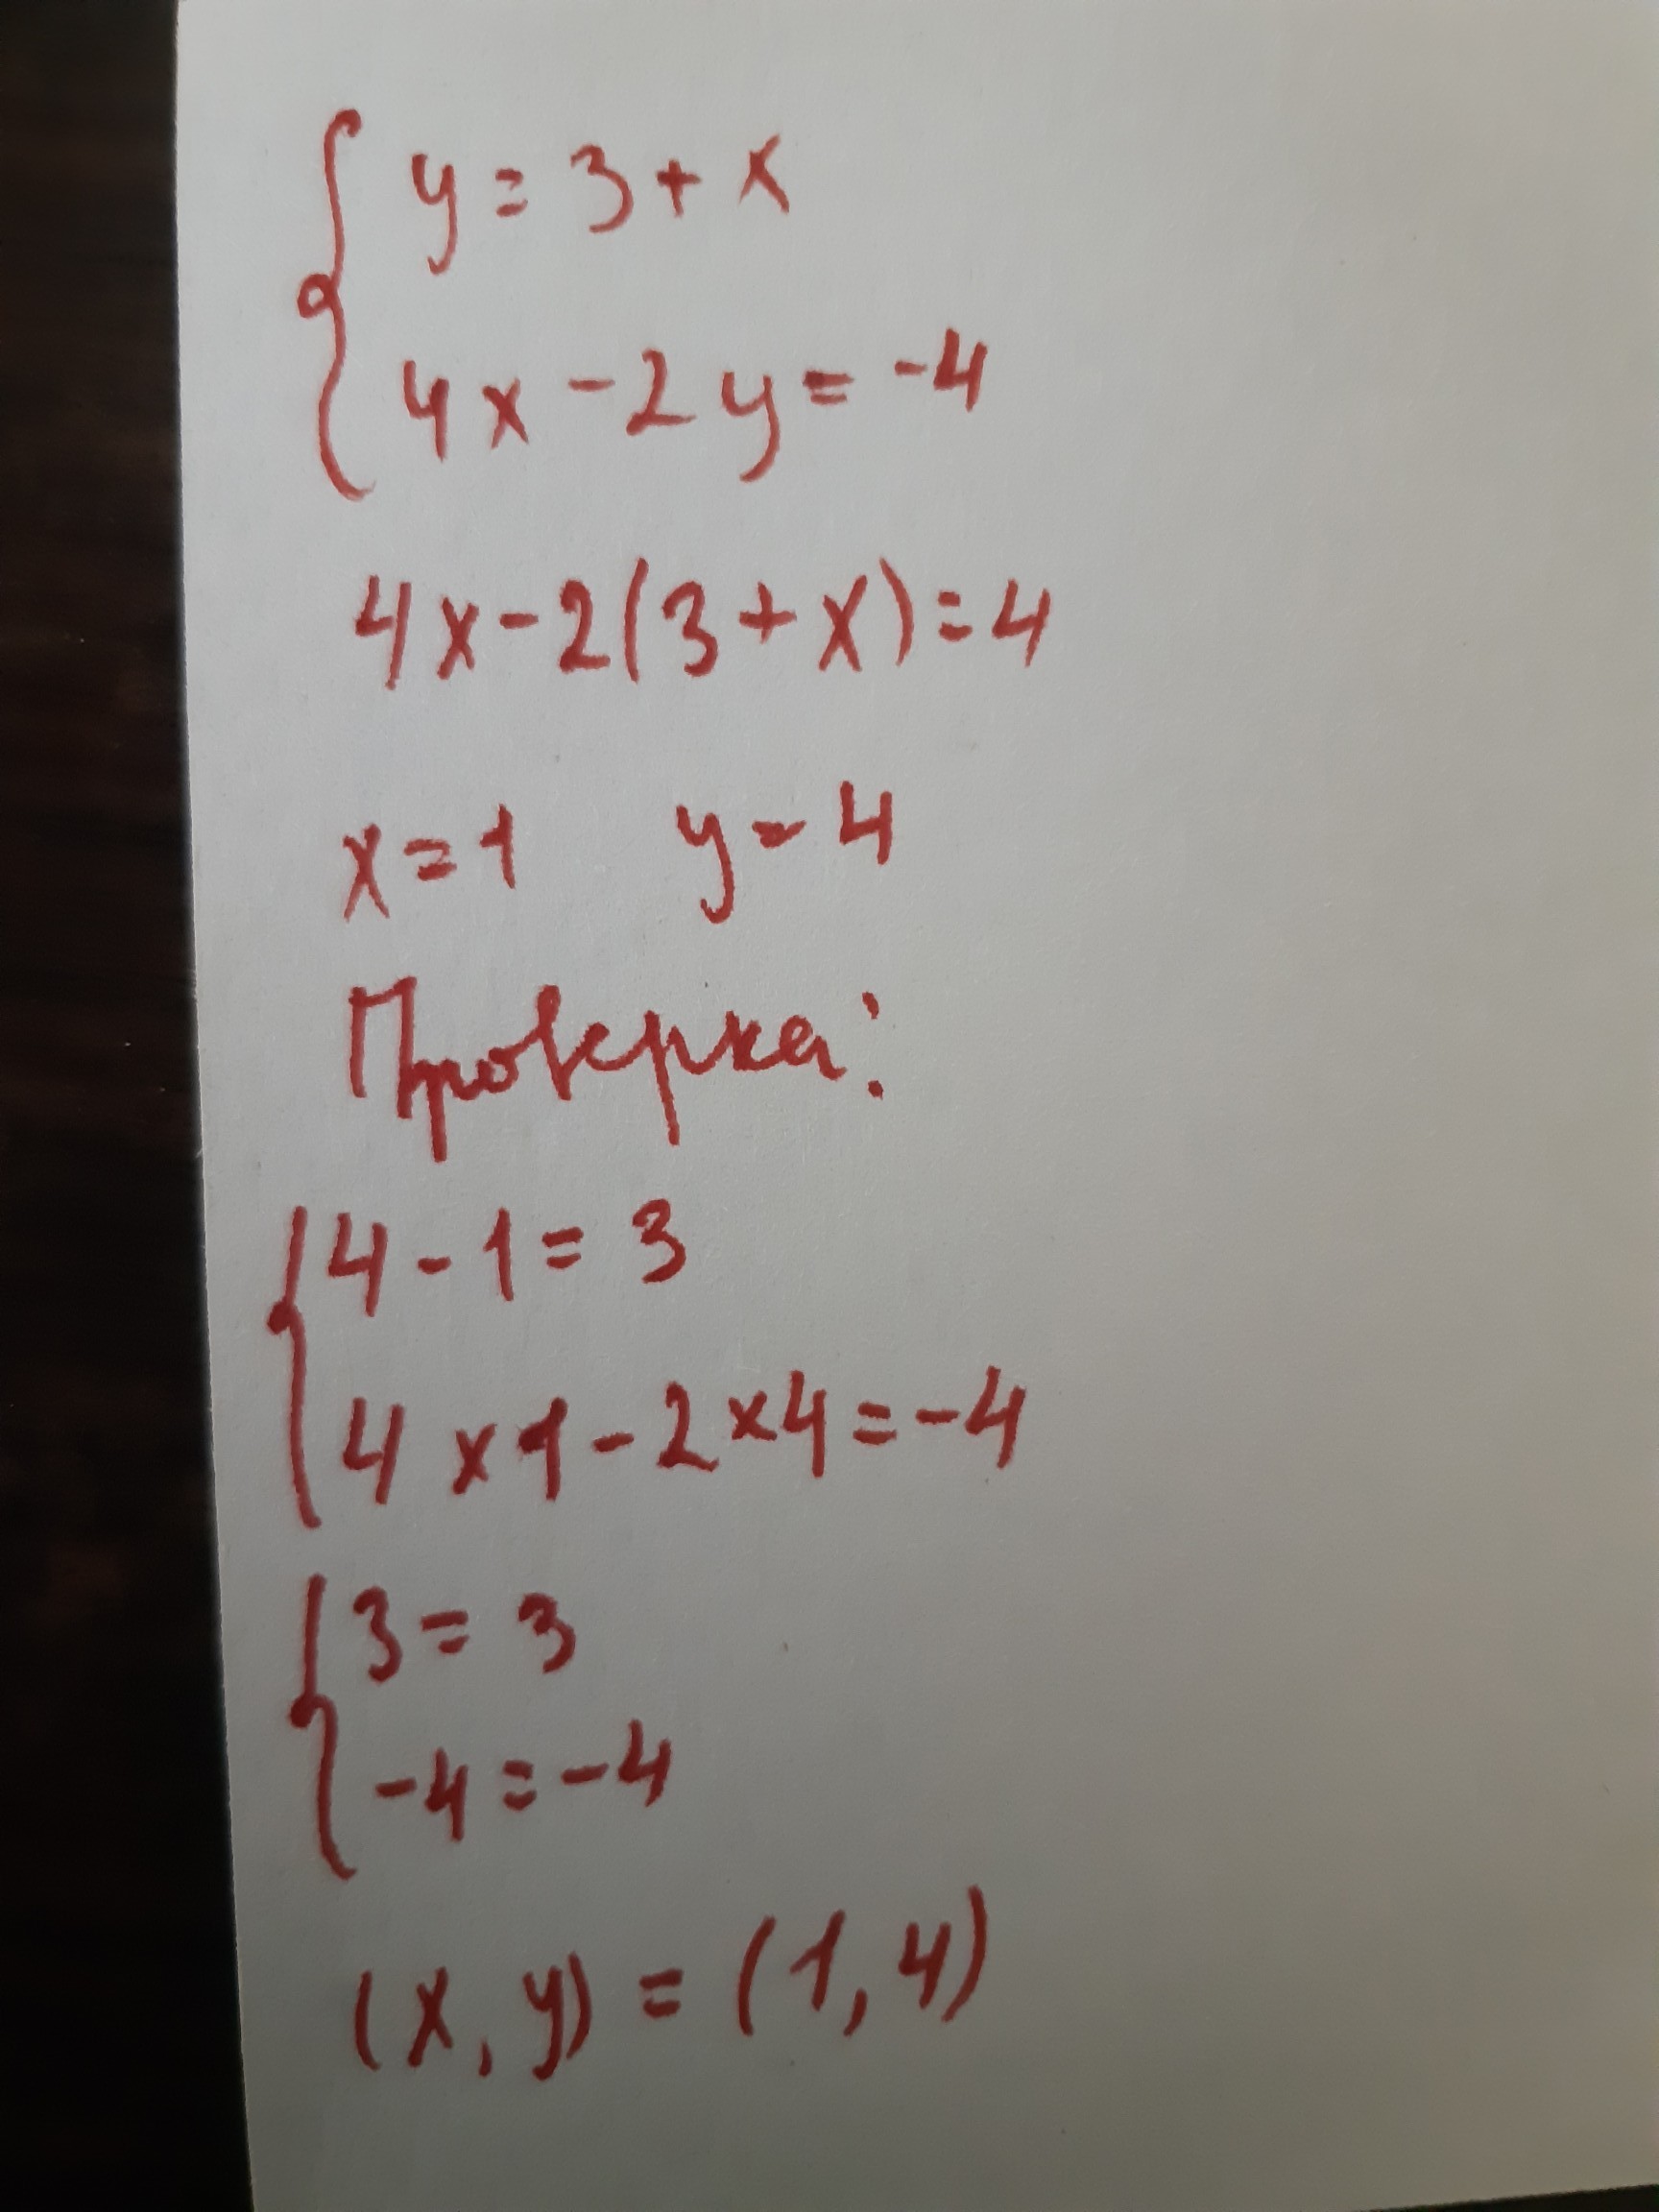 y = 3 + x
4x - 2y = -4
4x - 2(3 + x) = 4
x = 1 y = 4
Проверка:
4 - 1 = 3
4 x 1 - 2 x 4 = -4
3 = 3
-4 = -4
(x, y) = (1, 4)